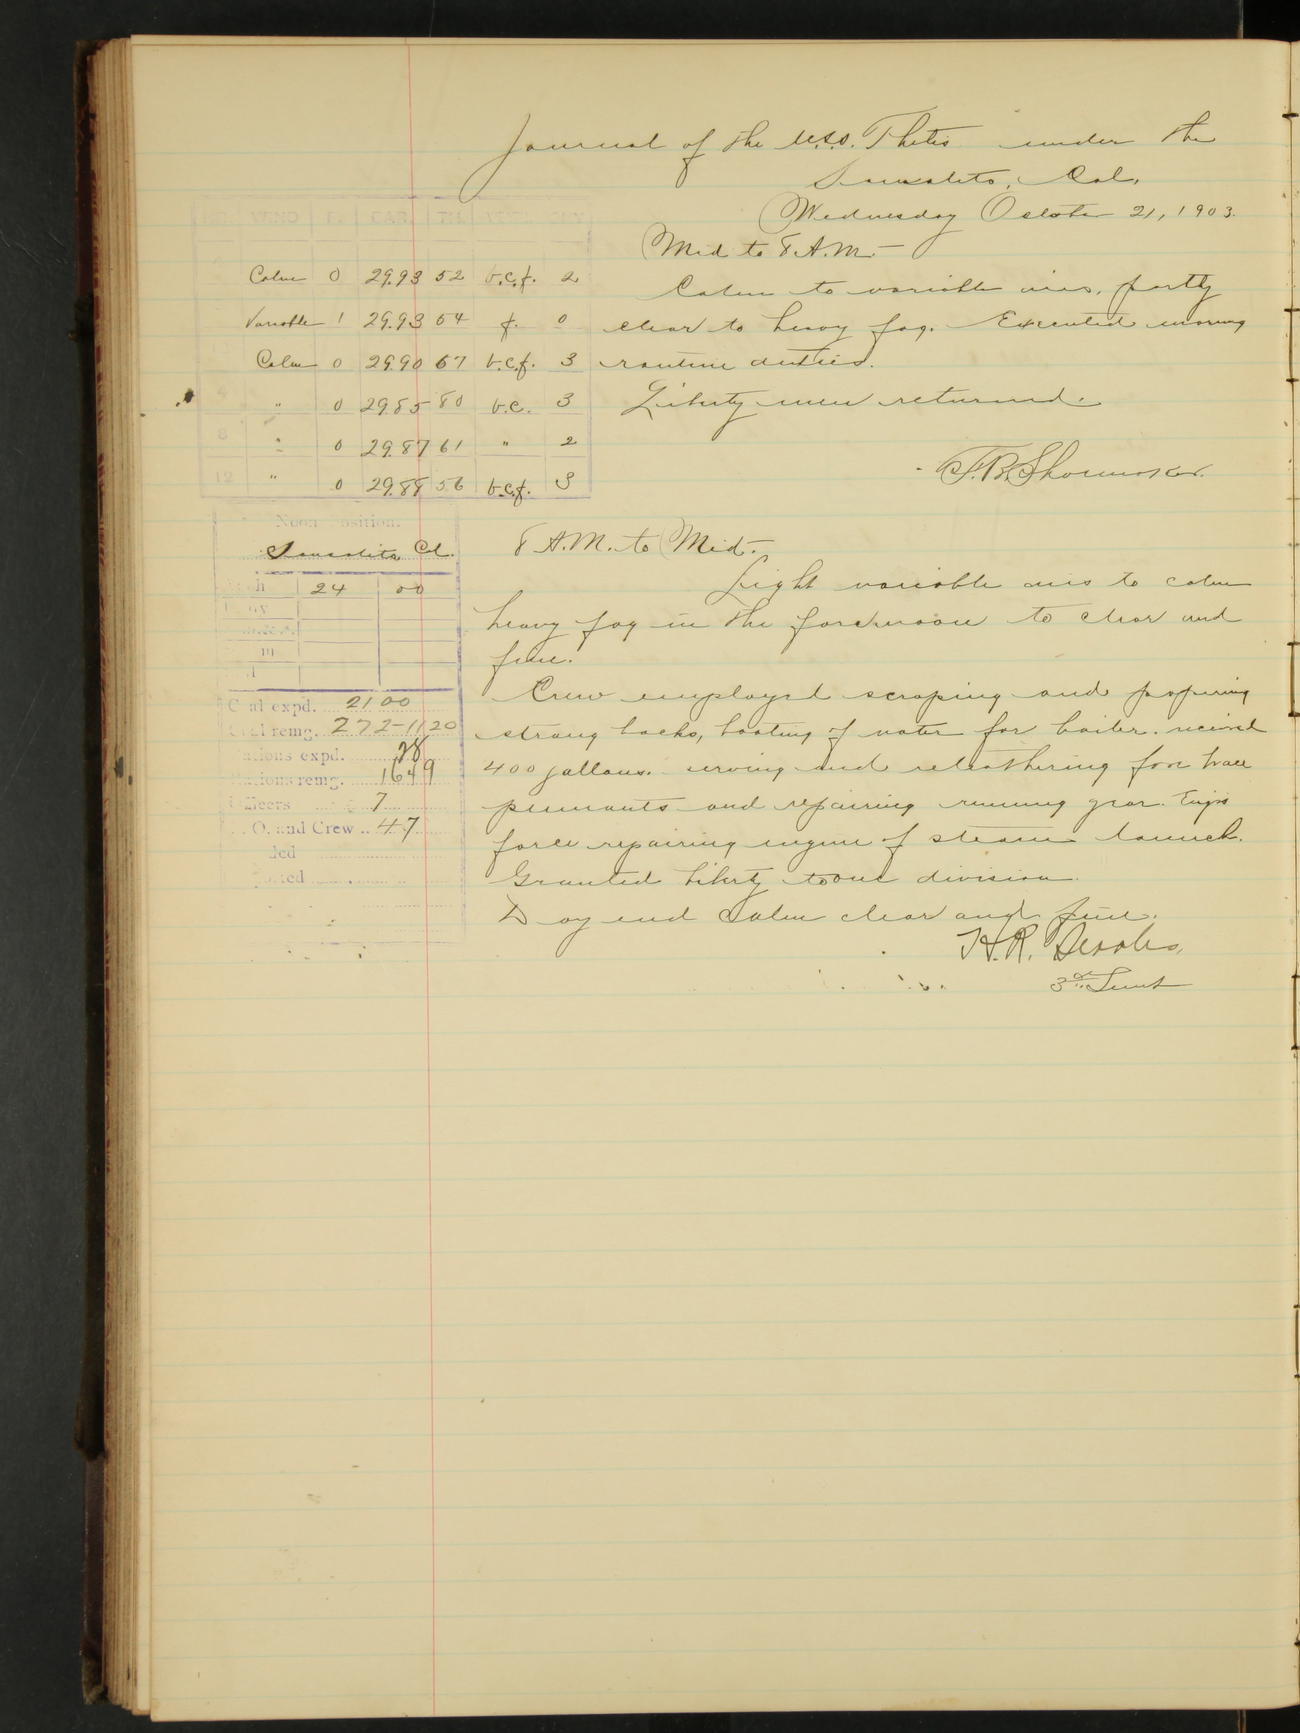 Journal of the U.S.S. Thetis under the
Sausalito, Cal.
Wednesday October 21, 1903.
WIND F. BAR. TH.
Calm 0 29.93 52 b.c.f. 2
Variable 1 29.93 54 f. 0
Calm 0 29.90 67 b.c.f. 3
4 " 0 29.85 80 b.c. 3
8 " 0 29.87 61 " 2
12 " 0 29.88 56 b.c.f. 3
Mid to 8 A.M.—
Calm to variable airs, partly
clear to heavy fog. Executed morning
routine duties.
Liberty men returned.
F.B. Shoemaker.
Noon Position.
Sausalito Cal.
24 00
Coal expd. 21 00
Coal remg. 272-1120
Rations expd. 28
Rations remg. 1649
Officers 7
P. O. and Crew .. 47
8 A.M. to Mid.—
Light variable airs to calm
heavy fog in the forenoon to clear and
fine.
Crew employed scraping and preparing
strong backs, boating of water for boiler. received
400 gallons. serving and releathering fore brace
pennants and repairing running gear. Engrs
force repairing engine of steam launch.
Granted liberty to one division.
Day end calm clear and fine.
H.R. Searles,
3rd Lieut